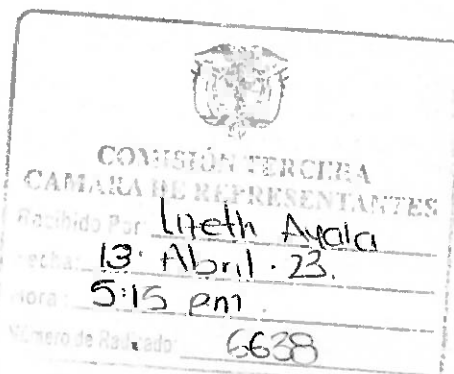 COMISIÓN TERCERA
CAMARA DE REPRESENTANTES
Recibido Por: Lizeth Ayala
Fecha: 13. Abril. 23.
Hora: 5:15 pm.
Número de Radicado: 6638